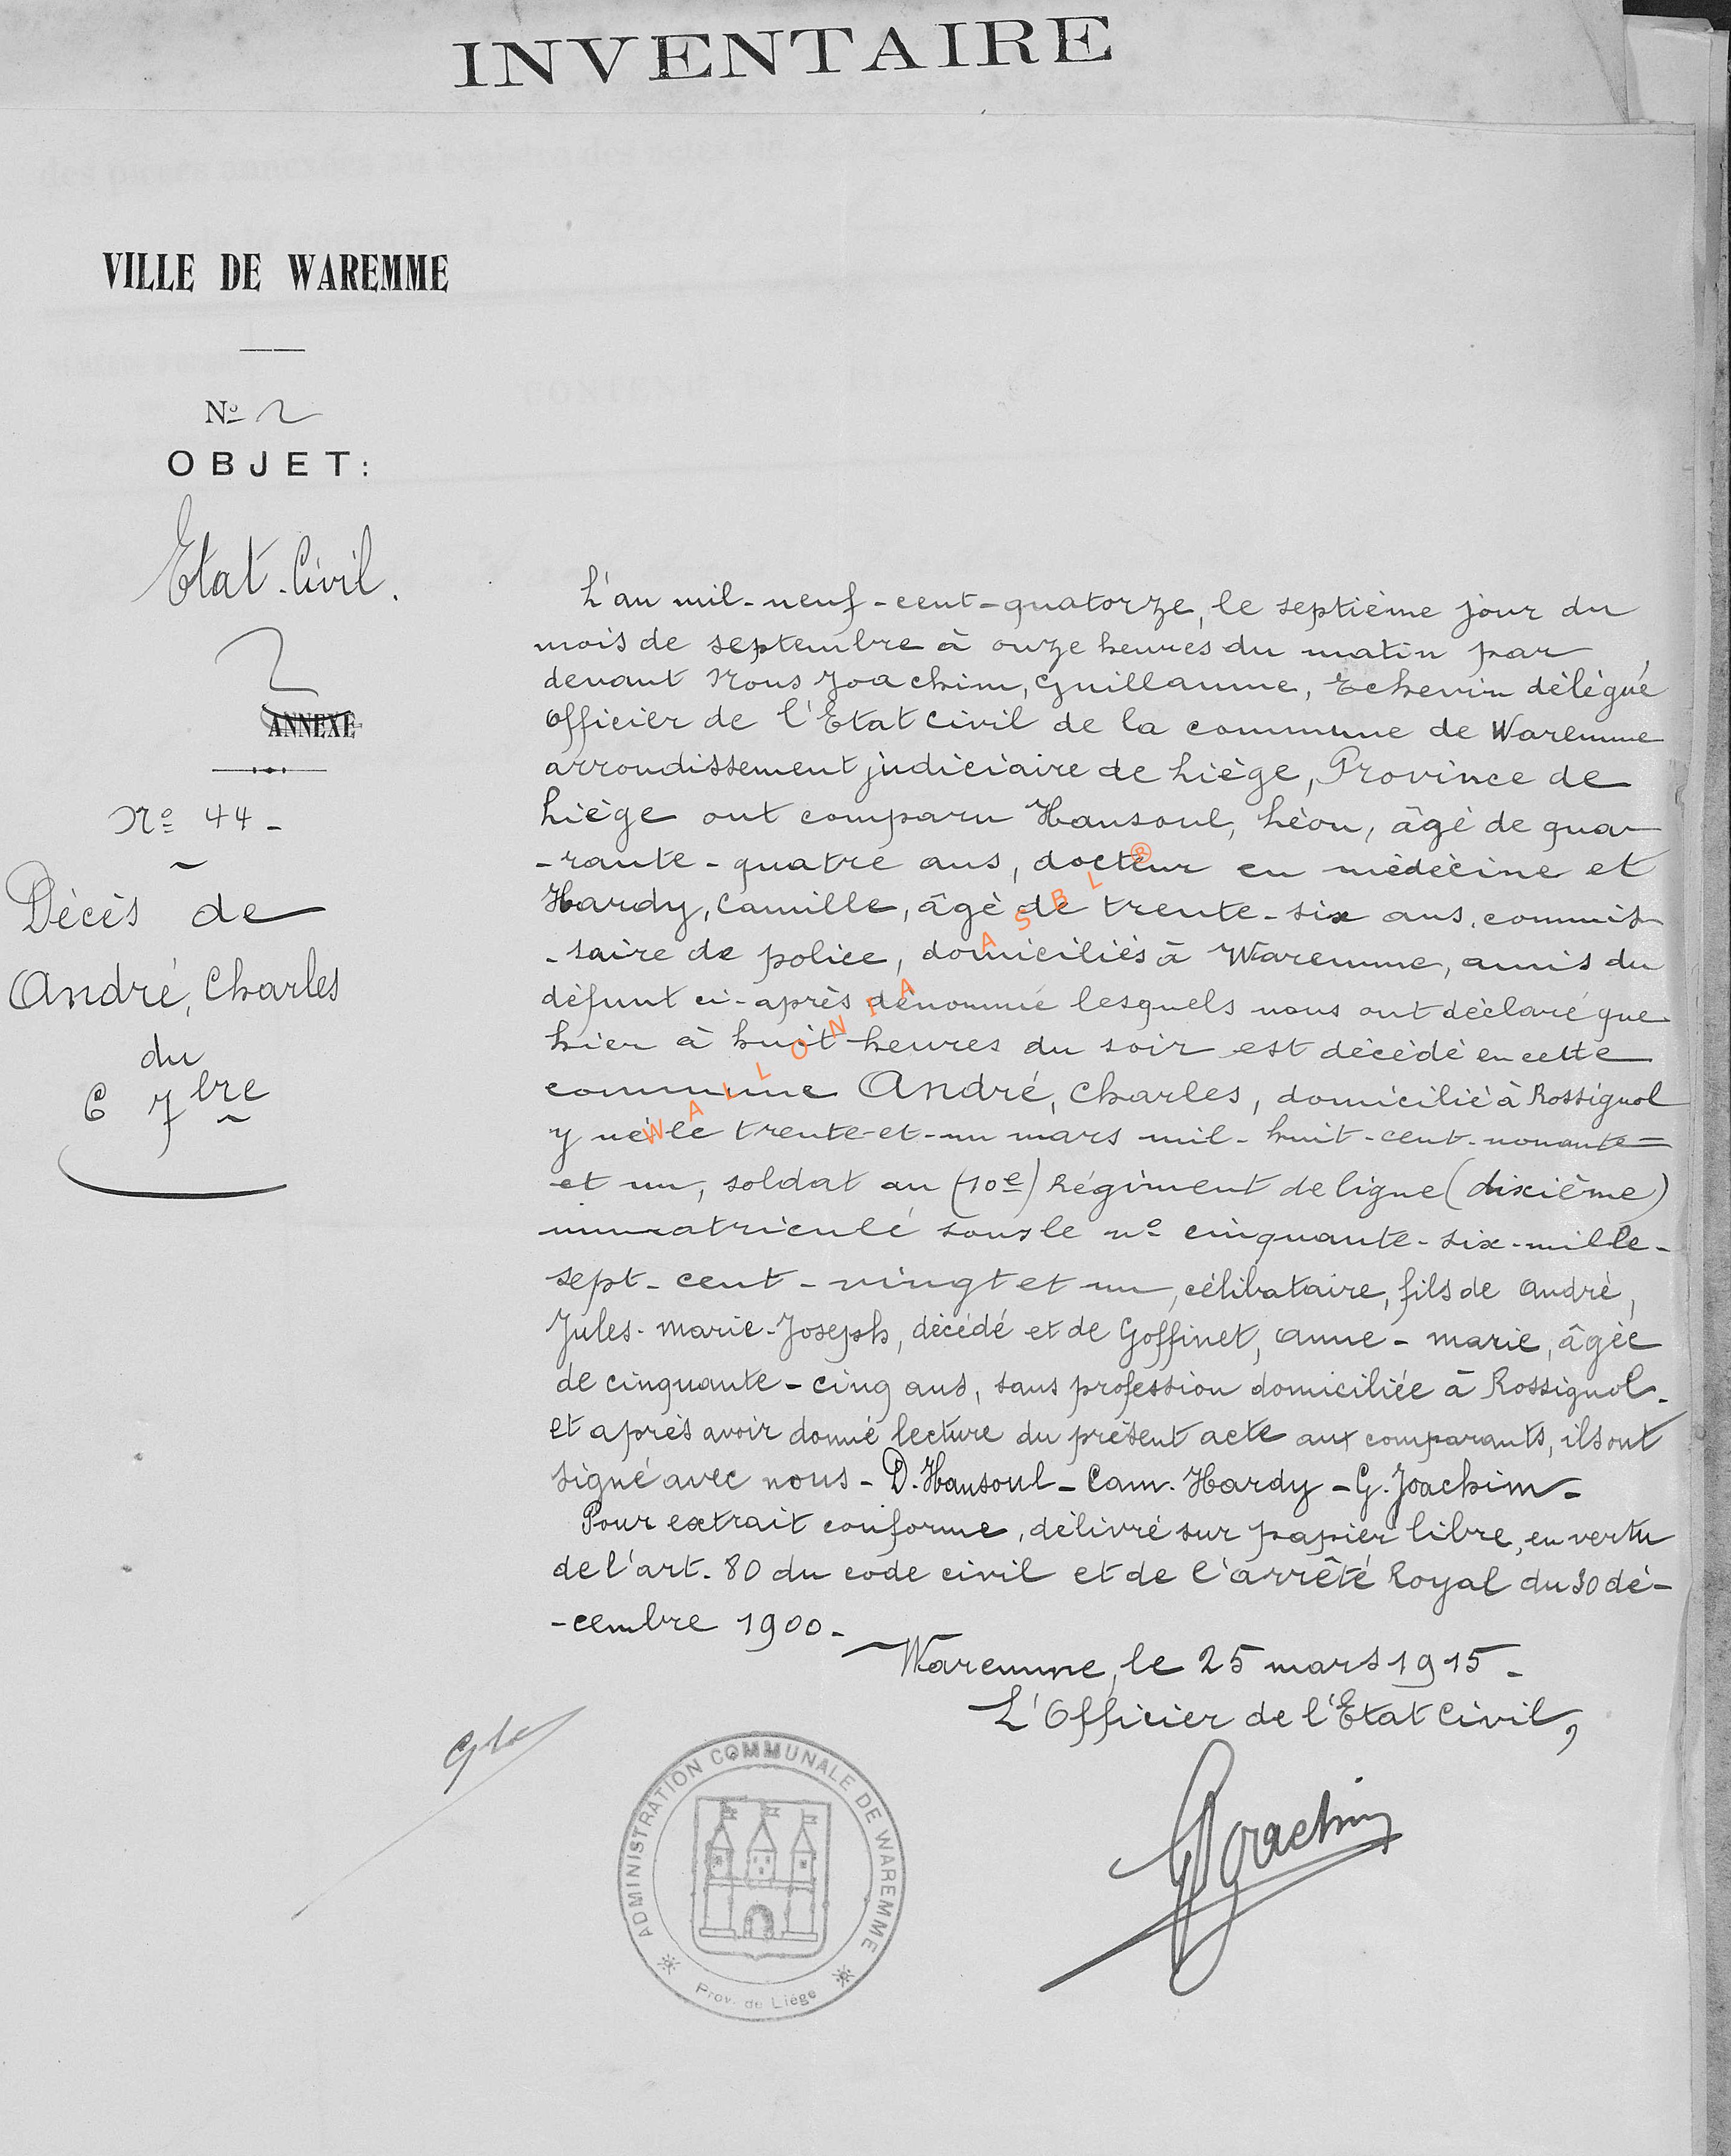 INVENTAIRE
VILLE DE WAREMME
No 2
OBJET:
Etat-Civil.
2
ANNEXE
No 44 -
Décès de
André, Charles
du
6 7bre
L'an mil-neuf-cent-quatorze, le septième jour du
mois de septembre à onze heures du matin par
devant Nous Joachim, Guillaume, Echevin délégué
officier de l'Etat civil de la commune de Waremme
arrondissement judiciaire de Liège, Province de
Liège ont comparu Hansoul, Léon, âgé de qua-
-rante-quatre ans, docteur en médecine et
Hardy, Camille, âgé de trente-six ans, commis-
-saire de police, domiciliés à Waremme, amis du
défunt ci-après dénommé lesquels nous ont déclaré que
hier à huit heures du soir est décédé en cette
commune André, Charles, domicilié à Rossignol
y né le trente-et-un mars mil-huit-cent-nonante=
et un, soldat au (10e) Régiment de ligne (dixième)
immatriculé sous le no cinquante-six-mille-
sept-cent-vingt et un, célibataire, fils de André,
Jules-marie-Joseph, décédé et de Goffinet, anne-marie, âgée
de cinquante-cinq ans, sans profession domiciliée à Rossignol.
et après avoir donné lecture du présent acte aux comparants, ils ont
signé avec nous - D. Hansoul - Cam. Hardy - G. Joachim -
Pour extrait conforme, délivré sur papier libre, en vertu
de l'art. 80 du code civil et de l'arrêté Royal du 30 dé-
-cembre 1900 -
Waremme, le 25 mars 1915 -
L'Officier de l'Etat Civil,
GJoachim
ADMINISTRATION COMMUNALE DE WAREMME
Prov. de Liège
WALLONIA ASBL ®